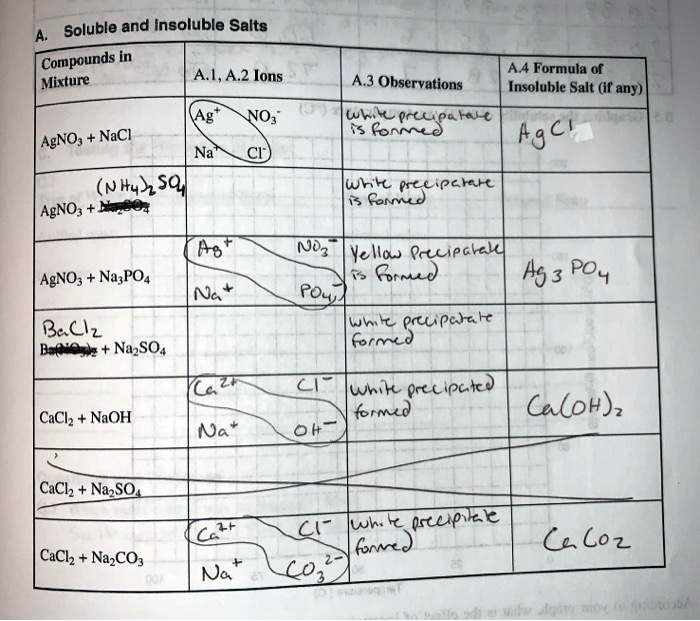 A. Soluble and Insoluble Salts
Compounds in
Mixture
A.1, A.2 Ions
A.3 Observations
A.4 Formula of
Insoluble Salt (if any)
AgNO₃ + NaCl
Ag⁺ NO₃⁻
Na⁺ Cl⁻
white precipatate
is formed
AgCl
(NH₄)₂SO₄
AgNO₃ + Na₂SO₄
white precipatate
is formed
AgNO₃ + Na₃PO₄
Ag⁺ NO₃⁻
Na⁺ PO₄
Yellow Precipatate
is formed
Ag₃PO₄
BaCl₂
Ba(NO₃)₂ + Na₂SO₄
white precipatate
formed
CaCl₂ + NaOH
Ca²⁺ Cl⁻
Na⁺ OH⁻
white precipated
formed
Ca(OH)₂
CaCl₂ + Na₂SO₄
CaCl₂ + Na₂CO₃
Ca²⁺ Cl⁻
Na⁺ CO₃²⁻
white precipitate
formed
CaCo₂